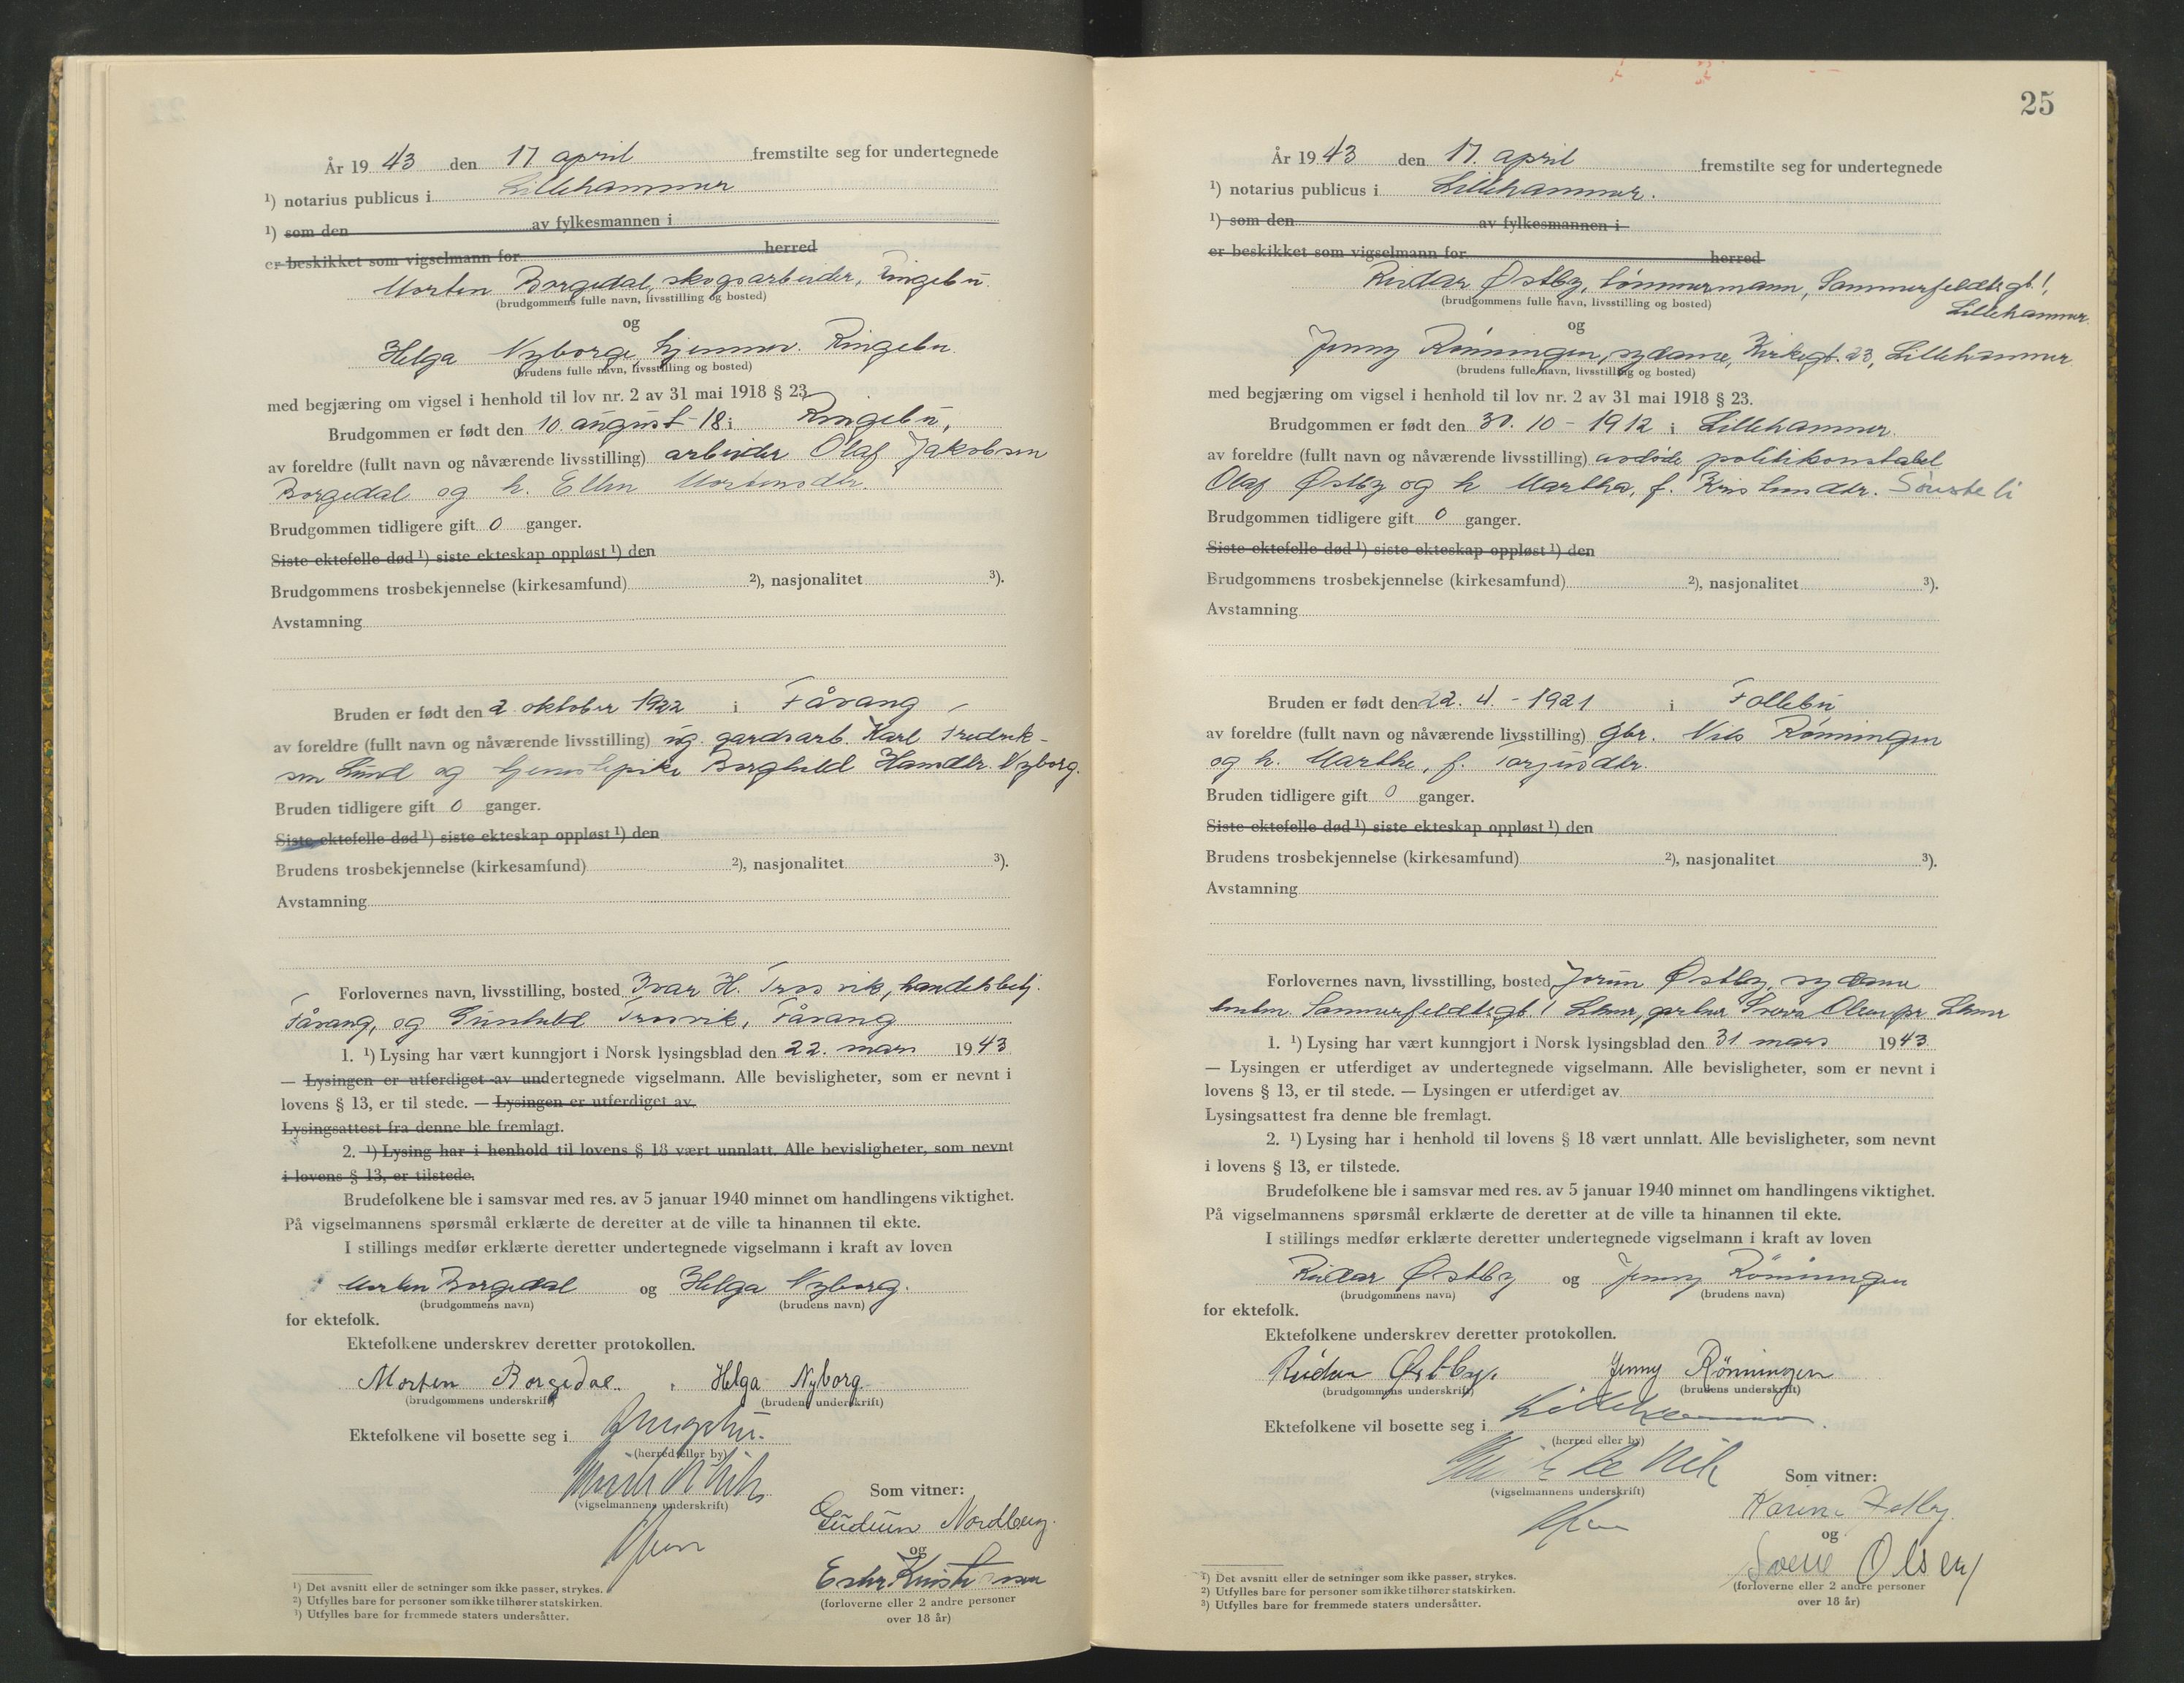 År 19 43 den 17 april fremstilte seg for undertegnede
¹) notarius publicus i Lillehammer
¹) som den av fylkesmannen i
er beskikket som vigselmann for herred
Morten Borgedal, skogsarbeider, Ringebu
(brudgommens fulle navn, livsstilling og bosted)
og
Helga Nyborg, hjemmev. Ringebu
(brudens fulle navn, livsstilling og bosted)
med begjæring om vigsel i henhold til lov nr. 2 av 31 mai 1918 § 23.
Brudgommen er født den 10. august - 18 i Ringebu,
av foreldre (fullt navn og nåværende livsstilling) arbeider Olaf Jakobsen
Borgedal og h. Ellen Mortensdtr.
Brudgommen tidligere gift 0 ganger.
Siste ektefelle død ¹) siste ekteskap oppløst ¹) den
Brudgommens trosbekjennelse (kirkesamfund) ²), nasjonalitet ³).
Avstamning
Bruden er født den 2 oktober 1922 i Fåvang
av foreldre (fullt navn og nåværende livsstilling) ug. gardsarb. Karl Fredrik-
sen Lund og tjenestepike Borghild Hansdtr. Nyborg.
Bruden tidligere gift 0 ganger.
Siste ektefelle død ¹) siste ekteskap oppløst ¹) den
Brudens trosbekjennelse (kirkesamfund) ²), nasjonalitet ³).
Avstamning
Forlovernes navn, livsstilling, bosted Ivar H. Trosvik, handelsbetj.
Fåvang, og Gunhild Trosvik, Fåvang
1. ¹) Lysing har vært kunngjort i Norsk lysingsblad den 22. mars 1943
— Lysingen er utferdiget av undertegnede vigselmann. Alle bevisligheter, som er nevnt i
lovens § 13, er til stede. — Lysingen er utferdiget av
Lysingsattest fra denne ble fremlagt.
2. ¹) Lysing har i henhold til lovens § 18 vært unnlatt. Alle bevisligheter, som nevnt
i lovens § 13, er tilstede.
Brudefolkene ble i samsvar med res. av 5 januar 1940 minnet om handlingens viktighet.
På vigselmannens spørsmål erklærte de deretter at de ville ta hinannen til ekte.
I stillings medfør erklærte deretter undertegnede vigselmann i kraft av loven
Morten Borgedal og Helga Nyborg.
(brudgommens navn) (brudens navn)
for ektefolk.
Ektefolkene underskrev deretter protokollen.
Morten Borgedal. Helga Nyborg
(brudgommens underskrift) (brudens underskrift)
Ektefolkene vil bosette seg i Ringebu.
(herred eller by)
(vigselmannens underskrift)
Som vitner:
Gudrun Nordberg.
og
Ester Kristiansen
(forloverne eller 2 andre personer
over 18 år)
¹) Det avsnitt eller de setninger som ikke passer, strykes.
²) Utfylles bare for personer som ikke tilhører statskirken.
³) Utfylles bare for fremmede staters undersåtter.
25
År 19 43 den 17. april fremstilte seg for undertegnede
¹) notarius publicus i Lillehammer.
¹) som den av fylkesmannen i
er beskikket som vigselmann for herred
Reidar Østby, tømmermann, Sommerfeldtsgt. 1,
Lillehammer.
(brudgommens fulle navn, livsstilling og bosted)
og
Jenny Rønningen, sydame, Kirkegt. 23, Lillehammer
(brudens fulle navn, livsstilling og bosted)
med begjæring om vigsel i henhold til lov nr. 2 av 31 mai 1918 § 23.
Brudgommen er født den 30. 10 - 1912 i Lillehammer.
av foreldre (fullt navn og nåværende livsstilling) avdøde politikonstabel
Olaf Østby og h Martha, f. Kristiansdtr.
Brudgommen tidligere gift 0 ganger.
Siste ektefelle død ¹) siste ekteskap oppløst ¹) den
Brudgommens trosbekjennelse (kirkesamfund) ²), nasjonalitet ³).
Avstamning
Bruden er født den 22. 4. - 1921 i Follebu
av foreldre (fullt navn og nåværende livsstilling) gbr. Nils Rønningen
og h. Marthe, f. Torjusdtr.
Bruden tidligere gift 0 ganger.
Siste ektefelle død ¹) siste ekteskap oppløst ¹) den
Brudens trosbekjennelse (kirkesamfund) ²), nasjonalitet ³).
Avstamning
Forlovernes navn, livsstilling, bosted Jorun Østby, sydame
Sommerfeldtsgt. 1 Lhmr, Sverre Olsen pr. Lhmr
1. ¹) Lysing har vært kunngjort i Norsk lysingsblad den 31 mars 1943
— Lysingen er utferdiget av undertegnede vigselmann. Alle bevisligheter, som er nevnt i
lovens § 13, er til stede. — Lysingen er utferdiget av
Lysingsattest fra denne ble fremlagt.
2. ¹) Lysing har i henhold til lovens § 18 vært unnlatt. Alle bevisligheter, som nevnt
i lovens § 13, er tilstede.
Brudefolkene ble i samsvar med res. av 5 januar 1940 minnet om handlingens viktighet.
På vigselmannens spørsmål erklærte de deretter at de ville ta hinannen til ekte.
I stillings medfør erklærte deretter undertegnede vigselmann i kraft av loven
Reidar Østby og Jenny Rønningen
(brudgommens navn) (brudens navn)
for ektefolk.
Ektefolkene underskrev deretter protokollen.
Reidar Østby. Jenny Rönningen
(brudgommens underskrift) (brudens underskrift)
Ektefolkene vil bosette seg i Lillehammer.
(herred eller by)
(vigselmannens underskrift)
Som vitner:
Karin Østby.
og
Sverre Olsen
(forloverne eller 2 andre personer
over 18 år)
¹) Det avsnitt eller de setninger som ikke passer, strykes.
²) Utfylles bare for personer som ikke tilhører statskirken.
³) Utfylles bare for fremmede staters undersåtter.